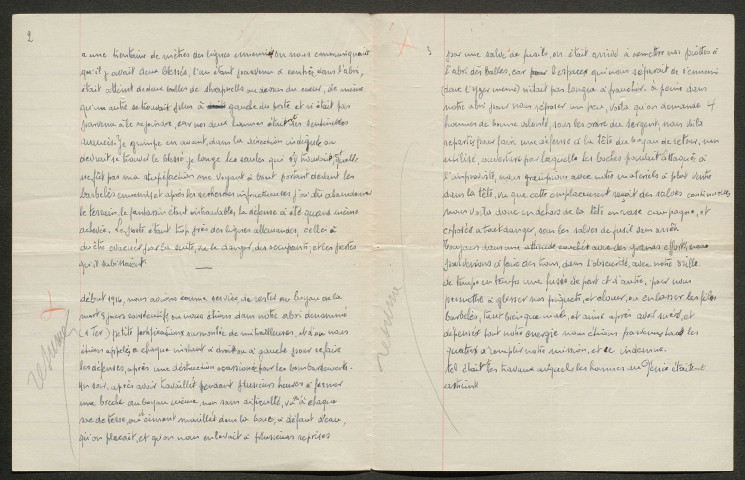 2
a une trentaine de mètres des lignes ennemies on nous communiquait
qu'il y avait deux blessés, l'un étant parvenu à rentrer dans l'abri,
était atteint de deux balles de shrapnells au dessus du coeur, de même
qu'un autre se trouvait plus à gauche du poste et n'était pas
parvenu à le rejoindre, car nos deux hommes étaient des sentinelles
avancées. Je grimpe en avant, dans la direction indiquée ou
devrait se trouver le blessé je longe les saules qui s'y trouvaient, quelle
ne fut pas ma stupéfaction me voyant à bout portant devant les
barbelés ennemis et après les recherches infructueuses j'ai dû abandonner
le terrain, le fantassin étant introuvable, la défense a été quand même
achevée. Le poste étant trop près des lignes allemandes, celui-ci
a dû être évacué par la suite, vu le danger des occupants, et les pertes
qu'il subissaient
résumé
début 1916, nous avions comme service, de rester au boyau de la
mort 3 jours consécutifs ou nous étions dans notre abri dénommé
(1 Ter) petite fortification surmontée de mitrailleuses, et d'où nous
étions appelés à chaque instant à droite ou à gauche pour refaire
les défenses, après une destruction occasionnée par les bombardements.
Un soir, après avoir travaillé pendant plusieurs heures à fermer
une breche au boyau même, non sans difficulté, vu à chaque
sac de terre, ou ciment mouillés dans la boue, à défaut d'eau,
qu'on plaçait, et qu'on nous enlevait à plusieurs reprises
3
par une salve de fusils, on était arrivé à remettre nos piottes à
l'abri des balles, car l'espace qui nous séparait de l'ennemi
dare (l'Yser même) n'était pas longue à franchir. à peine dans
notre abri pour nous reposer un peu, voilà qu'on demande 4
hommes de bonne volonté, sous les ordres du sergent, nous voilà
repartis pour faire une défense à la tête du boyau de retour, non
utilisé, ouverture par laquelle les boches pouvaient attaquer à
l'improviste, nous grimpions avec notre matériel à plat ventre
dans la tête, vu que cette emplacement reçoit des salves continuelles
nous voilà donc en dehors de la tête en rase campagne, et
exposés à tout danger, sous les salves de fusil sans arrêt
Toujours dans une attitude couchée avec des grands efforts, nous
parvenions à faire des trous, dans l'obscurité, avec notre vrille
de temps en temps une fusée de part et d'autre, pour nous
permettre à glisser nos piquets, et clouer, ou enlacer les files
barbelés, tant bien que mal, et ainsi après avoir usé et
dépensé tout notre énergie nous étions parvenus tous les
quatre à remplir notre mission, et indemne.
tel était les travaux auquel les hommes du Génie étaient
astreint
résumé